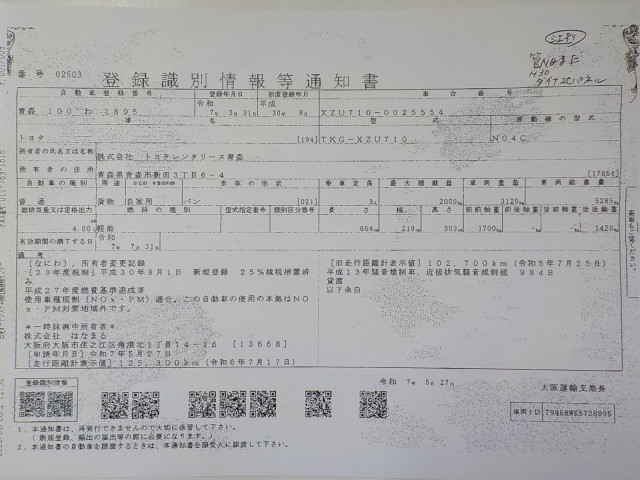 番号 02503
登録識別情報等通知書
自動車登録番号 登録年月日 初度登録年月 車台番号
青森 100 わ 1895 令和 7年 3月31日 平成 30年 8月 XZU710-0025554
車名 型式 原動機の型式
トヨタ [194] TKG-XZU710 N04C
所有者の氏名又は名称 株式会社 トヨタレンタリース青森
所有者の住所 青森県青森市新田3丁目6-4 [17654]
自動車の種別 用途 自家用・事業用の別 車体の形状 乗車定員 最大積載量 車両重量 車両総重量
普通 貨物 自家用 バン [021] 3人 2000kg 3120kg 5285kg
総排気量又は定格出力 燃料の種類 型式指定番号 類別区分番号 長さ 幅 高さ 前前軸重 前後軸重 後前軸重 後後軸重
4.00 軽油 654 219 303 1700kg 1420kg
有効期間の満了する日 令和 7年 7月31日
備考
[なにわ],所有者変更記録
[29年度税制]平成30年8月1日 新規登録 25%減税措置済み
平成27年度燃費基準達成車
使用車種規制(NOx・PM)適合。この自動車の使用の本拠はNOx・PM対策地域外です。
*一時抹消中所有者*
株式会社 はなまる
大阪府大阪市住之江区南港北1丁目14-16 [13668]
[申請年月日]令和7年5月27日
[走行距離計表示値]125,300km(令和6年7月17日)
[旧走行距離計表示値]102,700km(令和5年7月25日)
平成13年騒音規制車、近接排気騒音規制値 98dB
貸渡
以下余白
登録識別情報
令和 7年 5月27日
大阪運輸支局長
車両ID 79468WK5728995
1.本通知書は、再発行できませんので大切に保管して下さい。
(新規登録、輸出の届出等の際に必要になります。)
2.本通知書の自動車を譲渡するときは、本通知書を譲受人に譲渡して下さい。